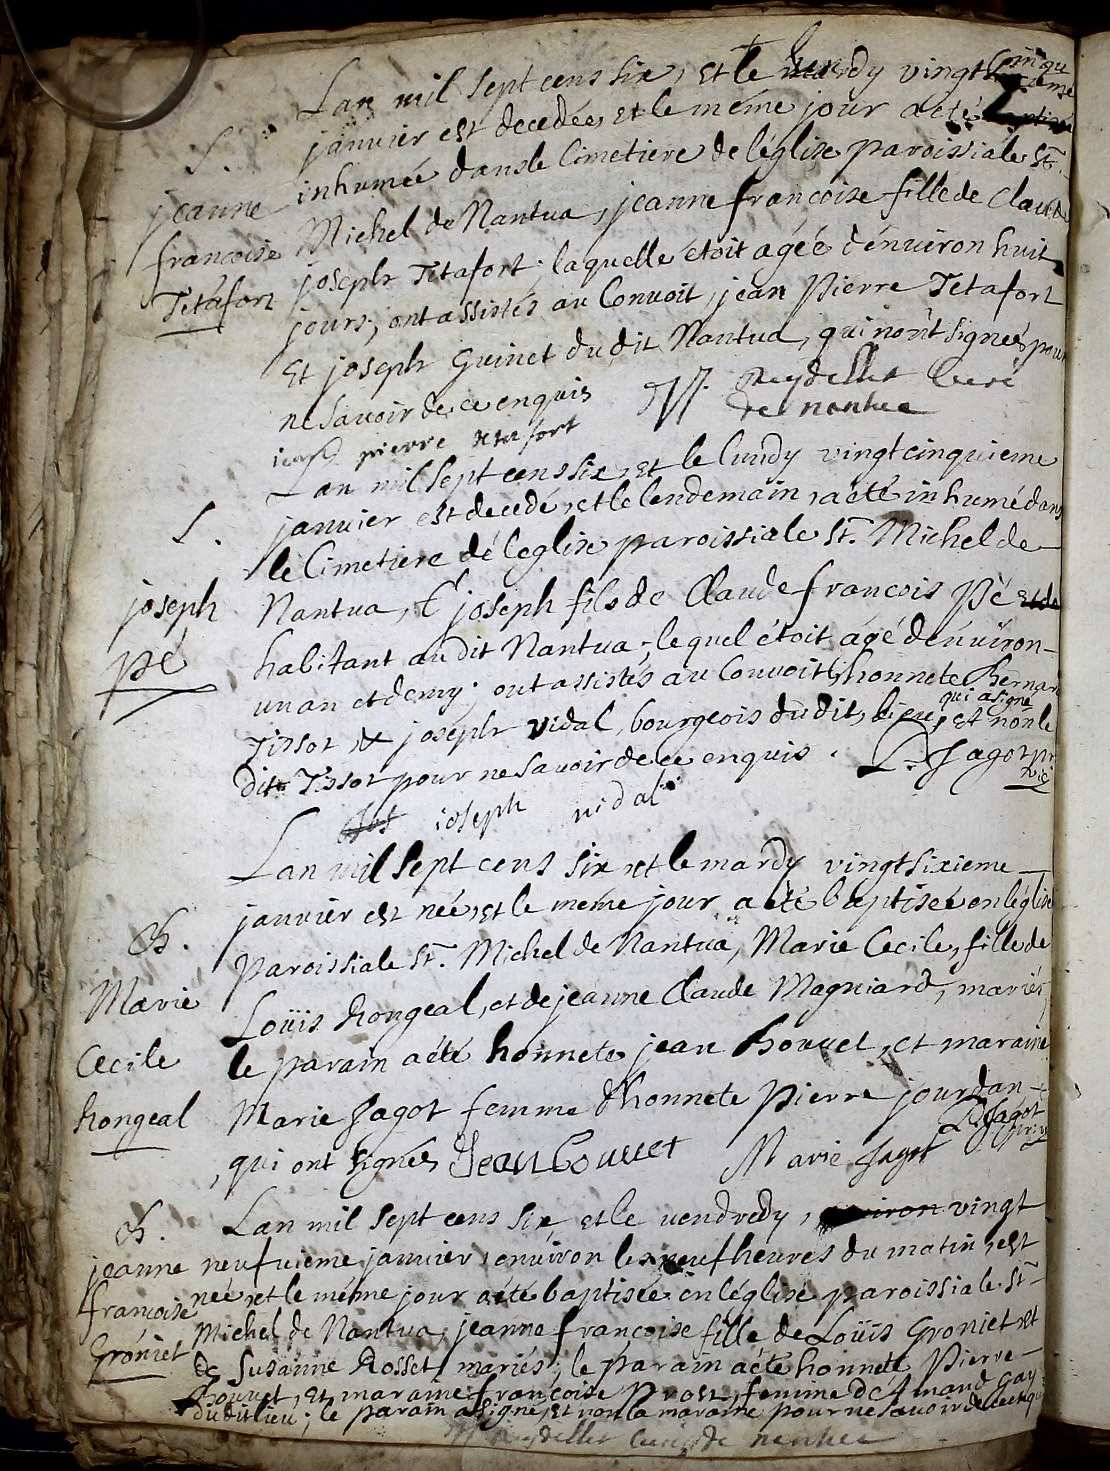 Lan mil sept cens six, et le lundy vingt cinquieme
janvier est decedée, et le méme jour a eté
inhumée dans le Cimetiere de léglise paroissiale St.
Michel de Nantua, jeanne francoise fille de Claude
joseph Tetafort. laquelle étoit agée dénviron huit
jours; ont assistés au Convoit, jean Pierre Tetafort
Et joseph Guinet du dit Nantua, qui nont signés pour
ne Savoir de ce enquis
Reydellet Curé
de nantua
pierre tetafort
S.
jeanne
francoise
Tetafort
Lan mil sept cens six, et le lundy vingt cinquieme
janvier est decedé, et le lendemain, a eté inhumé dans
le Cimetiere dé leglise paroissiale St. Michel de
Nantua, joseph fils de Claude francois Pé
habitant au dit Nantua; lequel étoit agé dénviron
un an et demy; ont assistés au Convoit honnete Bernard
Tissot & joseph vidal, bourgeois du dit lieu, qui a signé et non le
dit Tissot pour ne Savoir de ce enquis. Jagot pr
vic
joseph vidal
S.
joseph
pé
Lan mil sept cens six et le mardy vingt sixieme
janvier est née, et le méme jour a eté baptisée en léglise
Paroissiale St. Michel de Nantua, Marie Cecile, fille de
Loüis Rongeal, et de jeanne Claude Magniard, mariés,
le parain a eté honnete jean Bouvet, et maraine
Marie Jagot femme dhonnete Pierre jourdan
qui ont signés Jean Bouvet Marie Jagot
Jagot
B.
Marie
Cecile
Rongeal
Lan mil sept cens six et le vendredy, vingt
neufvieme janvier, environ les neuf heures du matin, est
née, et le méme jour a eté baptisée en léglise paroissiale St
Michel de Nantua, jeanne francoise fille de Loüis Groniet et
de Susanne Rosset, mariés; le parain a eté honnete Pierre
Bouvet, et maraine francoise Prost, femme de Amand Gay
du dit lieu; le parain a signé, et non la maraine pour ne savoir de ce enquis
Reydellet curé de nantua
B.
jeanne
francoise
Groniet